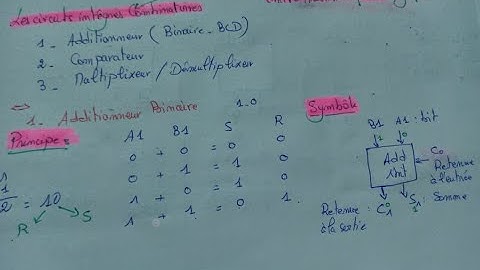 Les circuits intégrés Combinatoires
1 - Additionneur (Binaire - BCD)
2 - Comparateur
3 - Multiplexeur / Démultiplexeur
⇔ 1 - Additionneur Binaire 1.0
Principe :
A1 B1 S R
0 + 0 = 0 0
0 + 1 = 1 0
1 + 0 = 1 0
1 + 1 = 0 1
1
2 = 10
R S
Symbole
B1 A1 : bit
1 0
Add
1bit
C0
Retenue
à l'entrée
0 1
C1 S1 : Somme
Retenue :
à la sortie